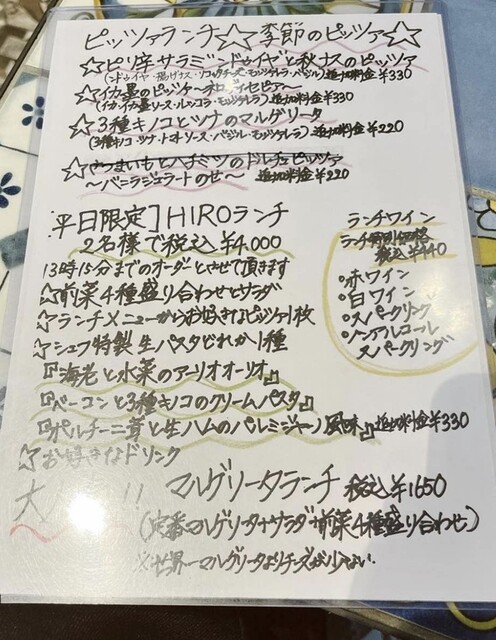 ピッツァランチ☆季節のピッツァ☆
☆ピリ辛サラミ"ンドゥイヤ"と秋ナスのピッツァ
(ンドゥイヤ・揚げナス・リコッタチーズ・モッツァレラ・バジル) 追加料金¥330
☆イカ墨のピッツァ
(イカ・イカ墨ソース・ルッコラ・モッツァレラ) 追加料金¥330
☆3種キノコとツナのマルゲリータ
(3種キノコ・ツナ・トマトソース・バジル・モッツァレラ) 追加料金¥220
☆さつまいもとハチミツのドルチェピッツァ
〜バニラジェラートのせ〜 追加料金¥220
平日限定】HIROランチ
2名様で税込¥4,000
13時15分までのオーダーとさせて頂きます
☆前菜4種盛り合わせとサラダ
☆ランチメニューからお好きなピッツァ1枚
☆シェフ特製生パスタどれか1種
『海老と水菜のアーリオオーリオ』
『ベーコンと3種キノコのクリームパスタ』
『ポルチーニ茸と生ハムのパルミジャーノ風味』追加料金¥330
☆お好きなドリンク
ランチワイン
ランチ特別価格
税込¥440
○赤ワイン
○白ワイン
○スパークリング
○ノンアルコール
スパークリング
大 !! マルゲリータランチ 税込¥1650
(定番マルゲリータ+サラダ+前菜4種盛り合わせ)
※世界一マルゲリータよりチーズが少ない.